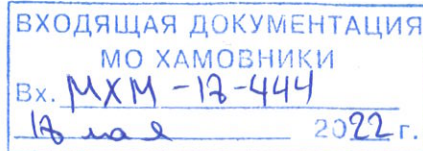 ВХОДЯЩАЯ ДОКУМЕНТАЦИЯ
МО ХАМОВНИКИ
Вх.
мая 2022 г.